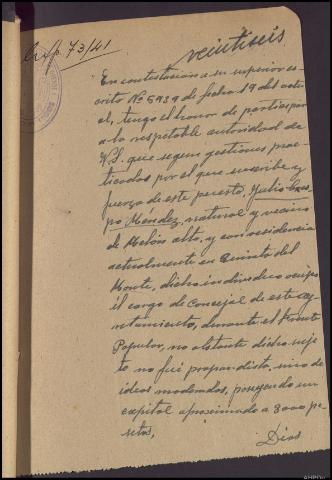 Exp. 73/41
veintiseis
En contestacion a su superior es-
crito Nº 5939 de fecha 19 del actu-
al, tengo el honor de participar
a la respetable autoridad de
V.S. que segun gestiones prac-
ticadas por el que suscribe y
fuerza de este puesto, Julio Cres-
po Méndez, natural y vecino
de Melón alto, y con residencia
actualmente en Quinta del
Monte, dicho individuo ocupo
el cargo de Concejal de este ay-
untamiento, durante el Frente
Popular, no obstante dicho suje-
to no fué propagandista, sino de
ideas moderadas, poseyendo un
capital aproximado a 3000 pe-
setas,
Dios